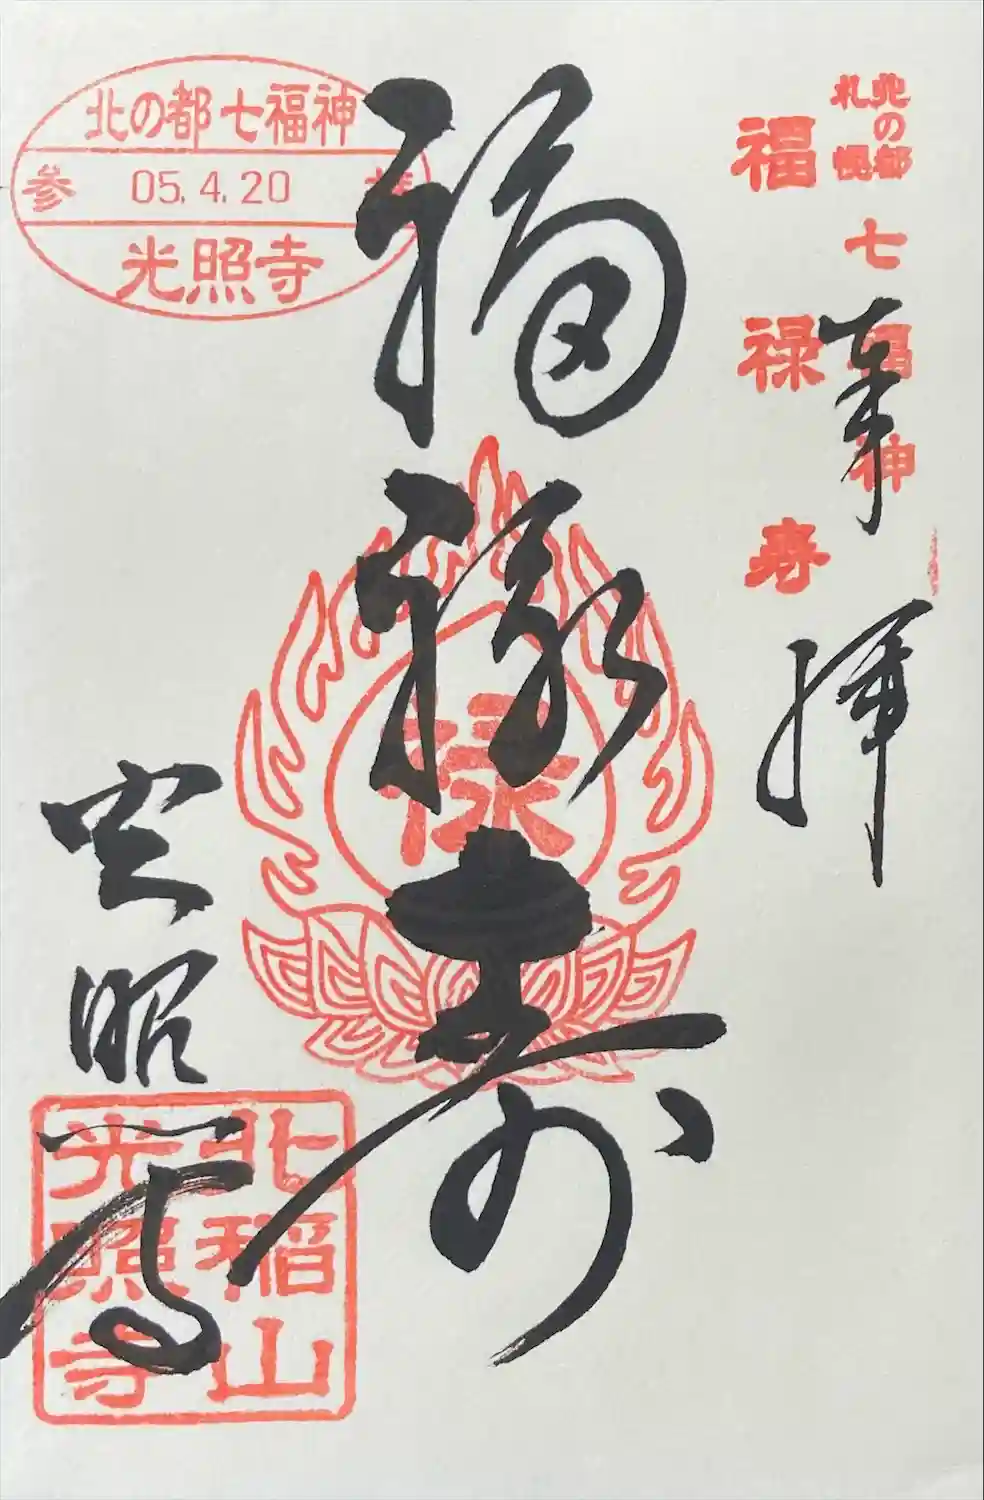 北の都
札幌
七福神
福禄寿
奉拝
福禄寿
禄
北の都七福神
参拝
05.4.20
光照寺
光照寺
北稲山
光照寺